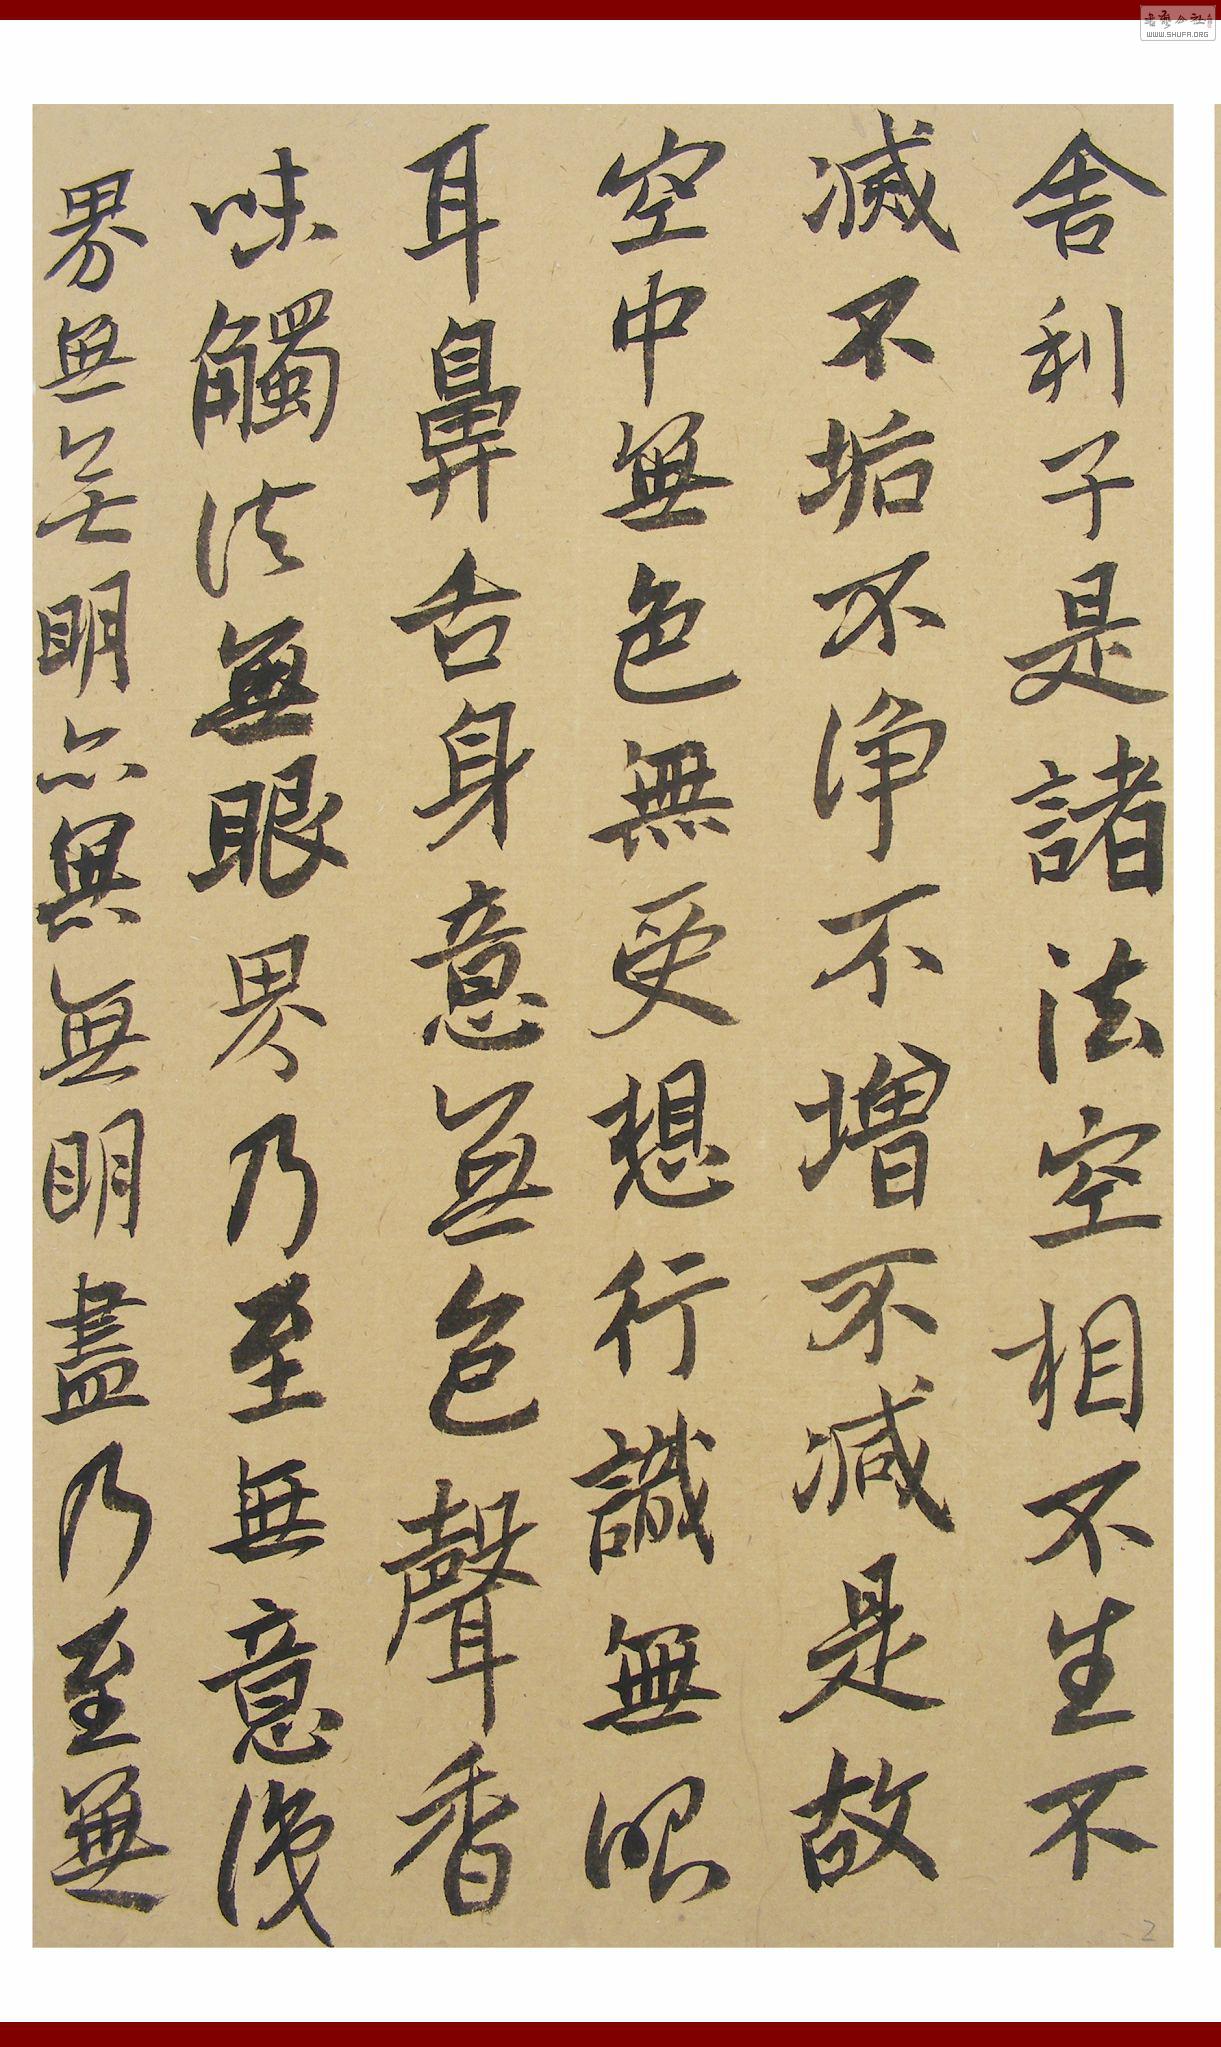 舎利子是諸法空相不生不
滅不垢不浄不増不減是故
空中無色無受想行識無眼
耳鼻舌身意無色聲香
味觸法無眼界乃至無意識
界無無明亦無無明盡乃至無
WWW.SHUFA.ORG
2